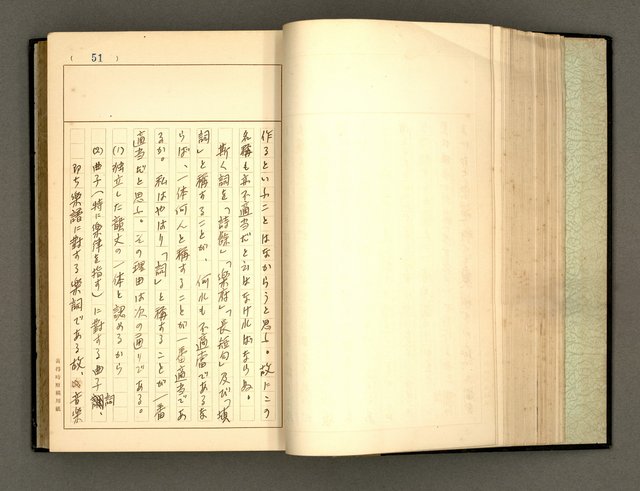 ( 51 )
作るといふことはなからうと思ふ。故にこの
名稱も亦不適当だと云はなければならぬ。
斯く詞を「詩餘」「樂府」「長短句」及び「填
詞」と稱することが、何れも不適當であるな
らば、一体何んと稱することが一番適当であ
るか。私はやはり「詞」と稱することが一番
適当だと思ふ。その理由は次の通りである。
(1) 独立した韻文の一体と認めるから
(2) 曲子(特に樂律を指す)に對する曲子詞、
即ち樂譜に對する樂詞である故、音樂
黃得時原稿用紙